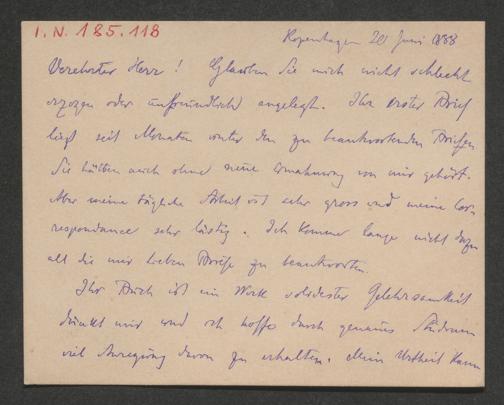 I.N. 185.118
Kopenhagen 20 Juni 1888
Verehrter Herr! Glauben Sie mich nicht schlecht
erzogen oder unfreundlich angelegt. Ihr erster Brief
liegt seit Monaten unter den zu beantwortenden Briefen
Sie hätten auch ohne neue Ermahnung von mir gehört.
Aber meine tägliche Arbeit ist sehr gross und meine Cor-
respondance sehr lästig. Ich komme lange nicht dazu
all die mir lieben Briefe zu beantworten.
Ihr Buch ist ein Werk solidester Gelehrsamkeit
dünkt mir und ich hoffe durch genaues Studium
viel Anregung davon zu erhalten. Mein Urtheil kann